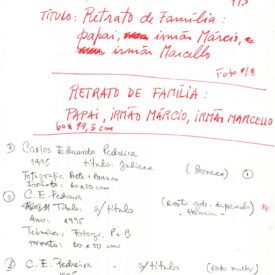 TÍTULO: Retrato de Família:
papai, irmão Márcio, e
irmão Marcello
Foto P/B
RETRATO DE FAMÍLIA:
PAPAI, IRMÃO MÁRCIO, IRMÃO MARCELLO
60 x 49,5 cm
① Carlos Eduardo Pedreira
1995 título: Juliana (Boneca) (1)
Fotografia Preto e Branco
Formato: 60x50 cm
② C. E. Pedreira
Título: s/título
Homem
Ano: 1995
Técnica: Fotogr. P+B
Formato: 60 x 50 cm
③ C. E. Pedreira - s/título